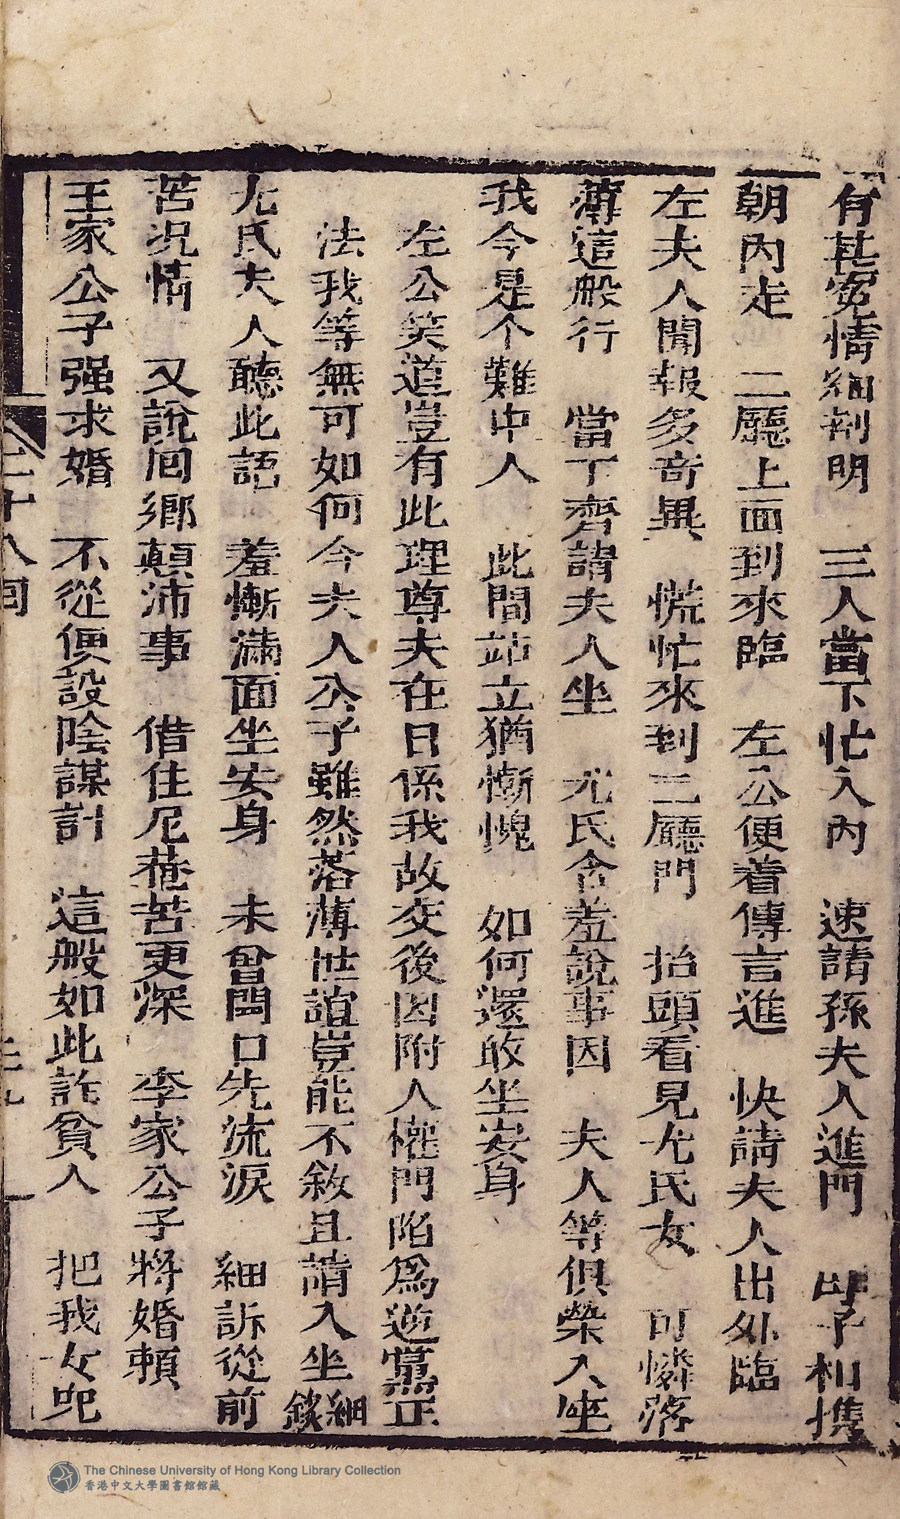 有甚冤情細剖明　三人當下忙入內　速請孫夫人進門　母子相携
朝內走　二廳上面到來臨　左公便着傳言進　快請夫人出外臨
左夫人聞報多奇異　慌忙來到二廳門　抬頭看見尤氏女　可憐落
薄這般行　當下齊請夫人坐　尤氏含羞說事因　夫人等俱榮入座
我今是个難中人　此間站立猶慚愧　如何還敢坐安身
左公笑道豈有此理尊夫在日係我故交後因附人權門陷爲逆黨正
法我等無可如何今夫人公子雖然落薄世誼豈能不敘且請入坐細
談
尤氏夫人聽此語　羞慚滿面坐安身　未曾開口先流淚　細訴從前
苦況情　又說回鄉顛沛事　借住尼菴苦更深　李家公子將婚賴
王家公子强求婚　不從便設陰謀計　這般如此詐貧人　把我女兒
二十八回
The Chinese University of Hong Kong Library Collection
香港中文大學圖書館館藏